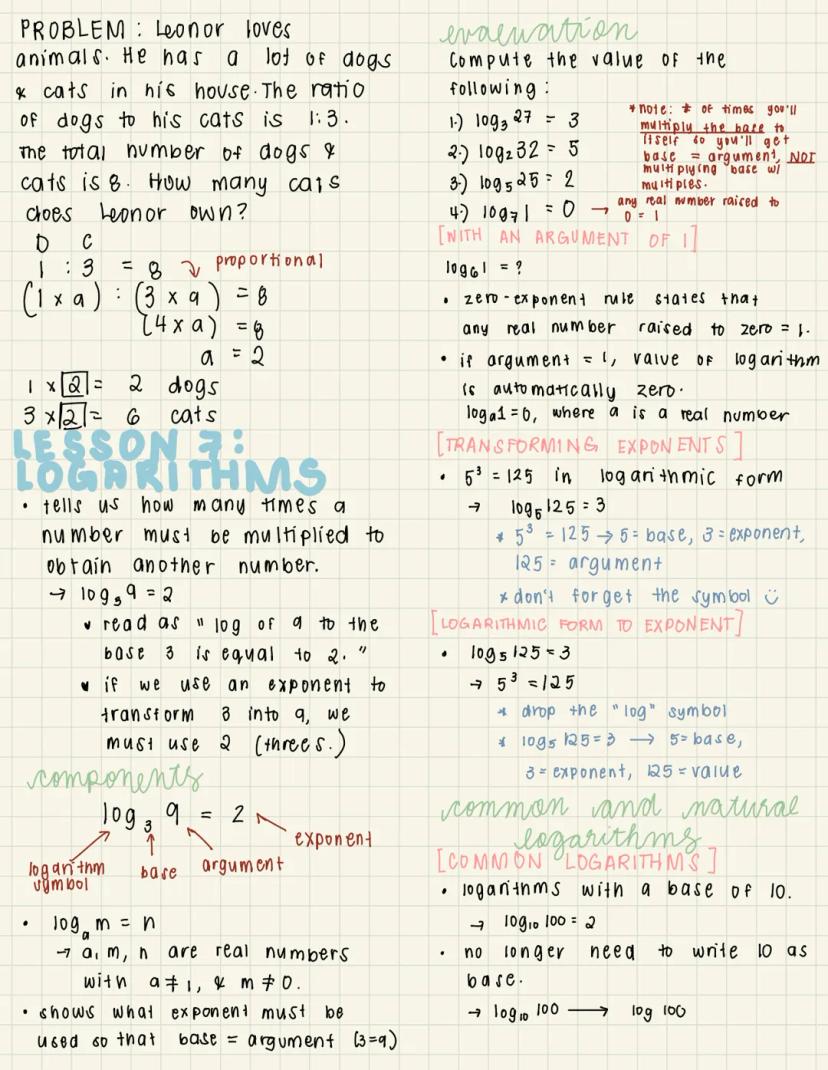 PROBLEM: Leonor loves
animals. He has a lot of dogs
& cats in his house. The ratio
of dogs to his cats is 1:3.
The total number of dogs &
cats is 8. How many cats
does Leonor own?
D C
1 : 3 = 8 proportional
(1 x a) : (3 x a) = 8
(4 x a) = 8
a = 2
1 x 2 = 2 dogs
3 x 2 = 6 cats
LESSON 7:
LOGARITHMS
• tells us how many times a
number must be multiplied to
obtain another number.
→ log₃9 = 2
read as "log of 9 to the
base 3 is equal to 2."
if we use an exponent to
transform 3 into 9, we
must use 2 (threes.)
components
log₃ 9 = 2
exponent
logarithm
symbol
base
argument
• logₐ m = n
→ a, m, n are real numbers
with a ≠ 1, & m ≠ 0.
• shows what exponent must be
used so that base = argument (3=9)
evaluation
Compute the value of the
following:
1.) log₃ 27 = 3
2.) log₂ 32 = 5
3.) log₅ 25 = 2
4.) log₇ 1 = 0 → any real number raised to
0 = 1
*note: # of times you'll
multiply the base to
itself so you'll get
base = argument, NOT
multiplying base w/
multiples.
[WITH AN ARGUMENT OF 1]
log₆1 = ?
• zero-exponent rule states that
any real number raised to zero = 1.
• if argument = 1, value of logarithm
is automatically zero.
logₐ1=0, where a is a real number
[TRANSFORMING EXPONENTS]
• 5³ = 125 in logarithmic form
→ log₅125 = 3
* 5³ = 125 → 5 = base, 3 = exponent,
125 = argument
* don't forget the symbol ☺
[LOGARITHMIC FORM TO EXPONENT]
• log₅ 125 = 3
→ 5³ = 125
* drop the "log" symbol
* log₅ 125 = 3 → 5 = base,
3 = exponent, 125 = value
common and natural
logarithms
[COMMON LOGARITHMS]
• logarithms with a base of 10.
→ log₁₀ 100 = 2
• no longer need to write 10 as
base.
→ log₁₀ 100 → log 100